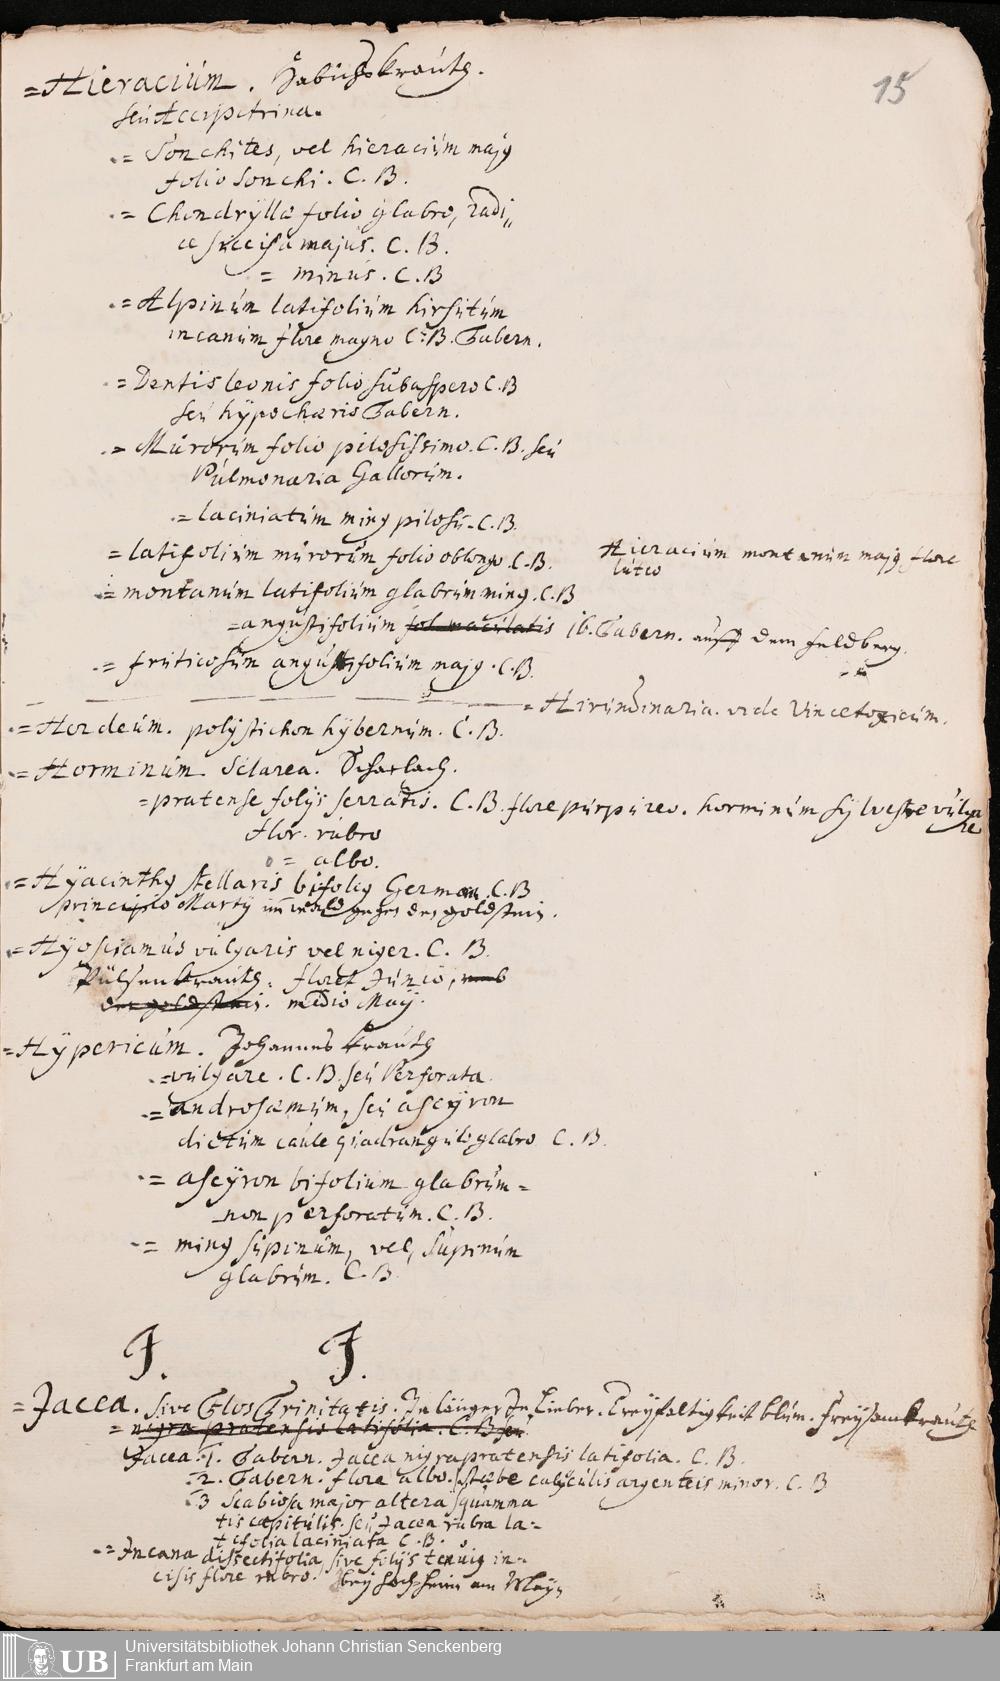 15
= Hieracium. Habichskrauth.
seu Accipitrina.
= Sonchites, vel hieracium maj9
folio Sonchi. C. B.
= Chondryllæ folio glabro, radi„
ce succisa majus. C. B.
= minus. C. B
= Alpinum latifolium hirsutum
incanum flore magno C. B. Tabern.
= Dentis leonis folio subaspero C. B
seu hÿpochæris Tabern.
= Murorum folio pilosissimo. C. B. seu
Pulmonaria Gallorum.
= laciniatum min9 pilosū. C. B.
= latifolium murorum folio oblongo. C. B.
Hieracium montanum maj9 flore
luteo
= montanum latifolium glabrum min9. C. B
= angustifolium fol maculatis ib. Tabern. auff dem feldberg.
= fruticosum angustifolium maj9. C. B.
= Hirundinaria. vide Vincetoxicum.
= Hordeum. polystichon hÿbernum. C. B.
= Horminum. Sclarea. Scharlach.
= pratense folÿs serratis. C. B. flore purpureo. horminum sÿlvestre vulga
re
flor. rubro
= albo.
= Hÿacinth9 stellaris bifoli9 German. C. B
principio Martÿ im wald gegen den goldstein.
= Hÿosciamus vulgaris vel niger. C. B.
Pülsenkrauth. floret Junio,
goldstein. medio Maÿ.
= Hÿpericum. Johannes krauth
= vulgare. C. B. seu Perforata
= androsæmum, seu ascÿron
dictum caule quadrangulo glabro C. B.
= ascÿron bifolium glabrum =
non perforatum. C. B.
= min9 supinum, vel, supinum
glabrum. C. B
J. J.
= Jacea. sive Flos Trinitatis. Je länger Je Lieber. Dreyfaltigkeit blum. freysamkrauth
= nigra pratensis latifolia. C. B seu
Jacea. 1. Tabern. Jacea nigra pratensis latifolia. C. B.
2. Tabern. flore albo. stœbe calyculis argenteis minor. C. B
3 Scabiosa major altera squamma
tis capitulis. seu Jacea rubra la-
tifolia laciniata C. B.
= Incana dissectifolia, sive folÿs tenuit9 in-
cisis flore rubro. beÿ hochheim am Maÿn
Universitätsbibliothek Johann Christian Senckenberg
Frankfurt am Main
UB